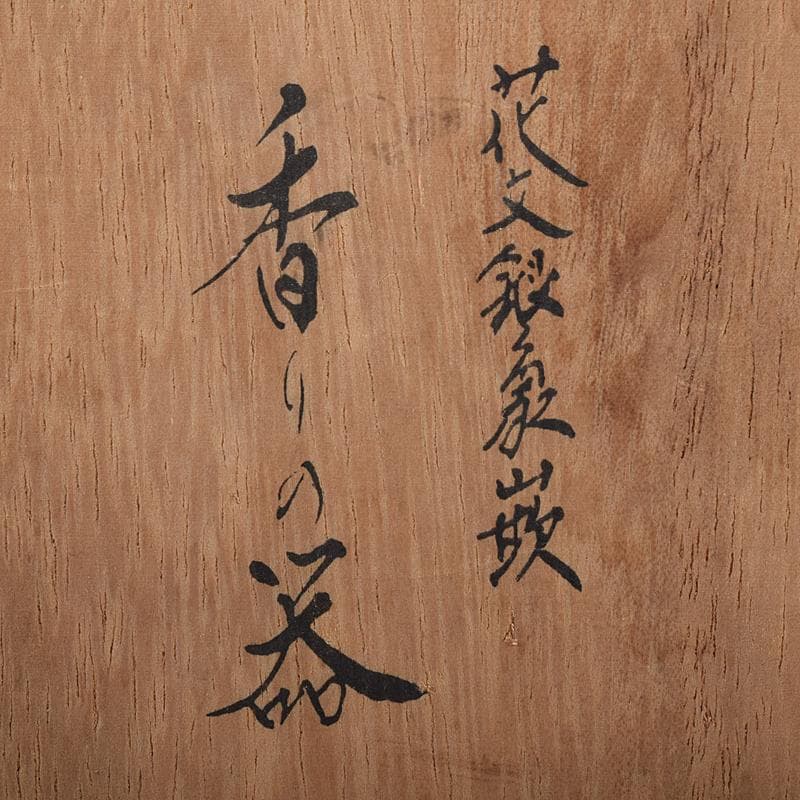 花文銀象嵌
香りの器